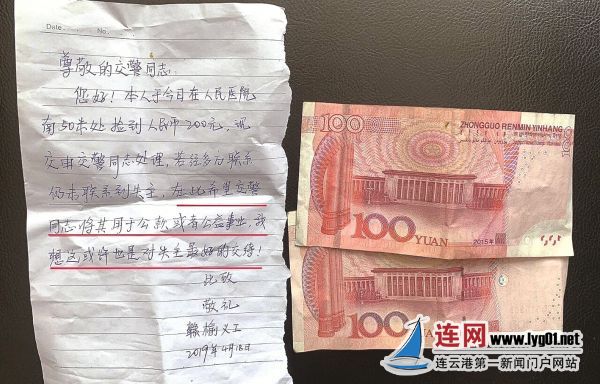 Date. No.
尊敬的交警同志:
您好！本人于今日在人民医院
南50米处捡到人民币200元,现
交由交警同志处理,若经多方联系
仍未联系到失主,在此希望交警
同志将其用于公款或者公益事业,我
想这或许也是对失主最好的交待!
此致
敬礼
赣榆义工
2019年4月18日
100
ZHONGGUO RENMIN YINHANG
100
100
YUAN
2015年
100
YUAN
连网 www.lyg01.net
连云港第一新闻门户网站